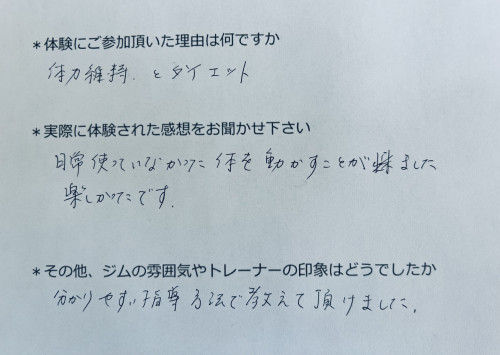 ＊体験にご参加頂いた理由は何ですか
体力維持. とダイエット
＊実際に体験された感想をお聞かせ下さい
日常使っていなかった体を動かすことが出来ました
楽しかったです.
＊その他、ジムの雰囲気やトレーナーの印象はどうでしたか
分かりやすい指導方法で教えて頂けました.